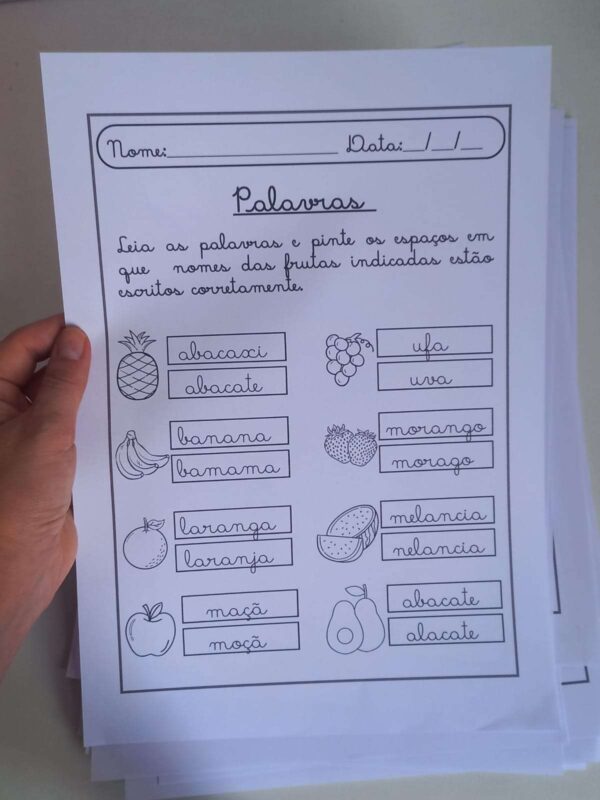 Nome:____________________ Data:__/__/__
Palavras
Leia as palavras e pinte os espaços em
que nomes das frutas indicadas estão
escritos corretamente.
abacaxi
abacate
ufa
uva
banana
bamama
morango
morago
laranga
laranja
melancia
nelancia
maçã
moçã
abacate
alacate